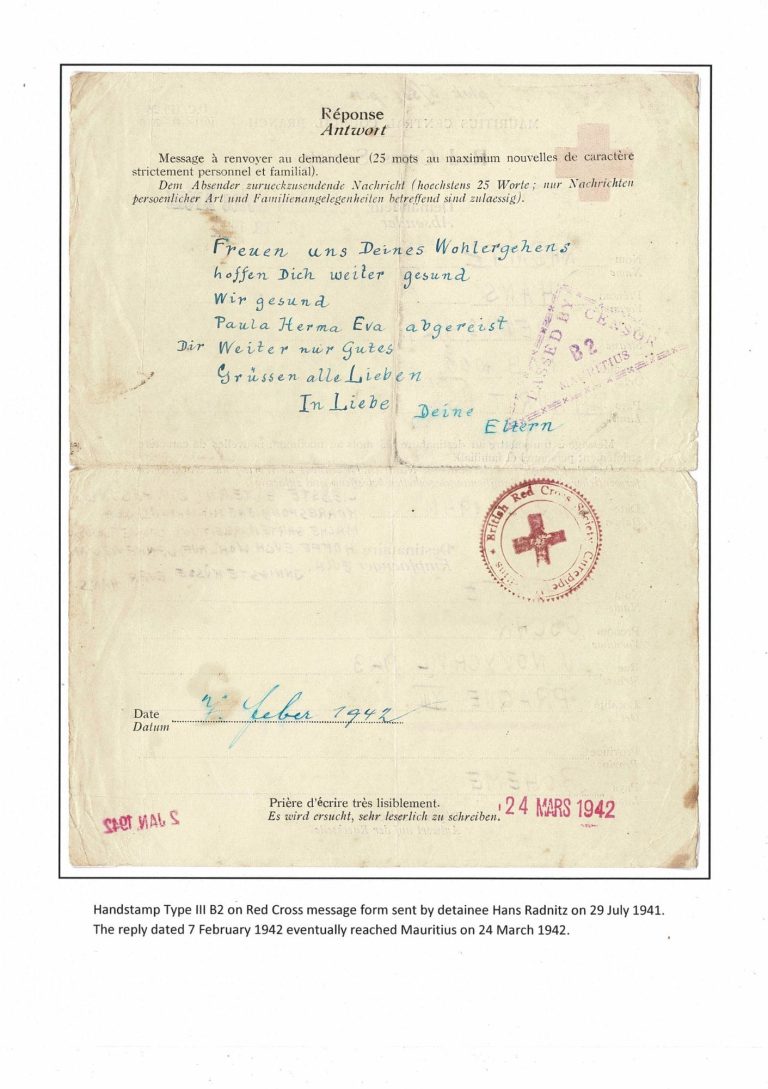 Réponse
Antwort
Message à renvoyer au demandeur (25 mots au maximum nouvelles de caractère
strictement personnel et familial).
Dem Absender zurueckzusendende Nachricht (hoechstens 25 Worte; nur Nachrichten
persoenlicher Art und Familienangelegenheiten betreffend sind zulaessig).
Freuen uns Deines Wohlergehens
hoffen Dich weiter gesund
Wir gesund
Paula Herma Eva abgereist
Dir Weiter nur Gutes
Grüssen alle Lieben
In Liebe Deine
Eltern
PASSED BY CENSOR
B2
MAURITIUS
British Red Cross Society Curepipe
Date 7. feber 1942
Datum
Prière d'écrire très lisiblement.
Es wird ersucht, sehr leserlich zu schreiben.
24 MARS 1942
2 JAN 1942
Handstamp Type III B2 on Red Cross message form sent by detainee Hans Radnitz on 29 July 1941.
The reply dated 7 February 1942 eventually reached Mauritius on 24 March 1942.